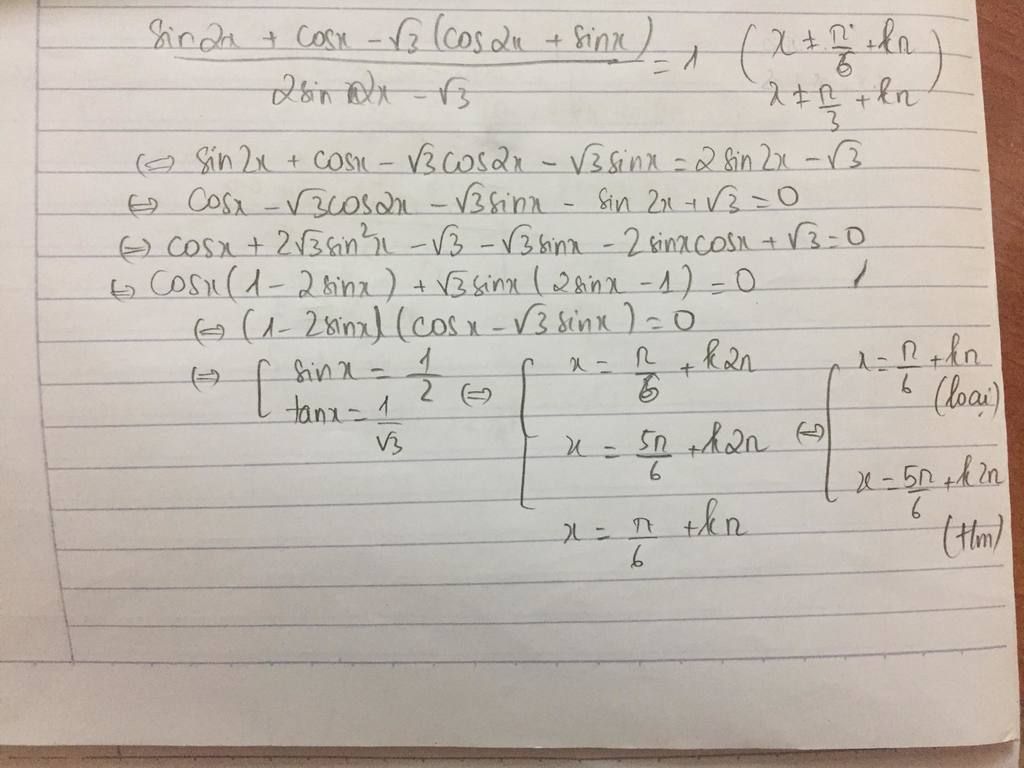 sin2x + cosx - √3 (cos2x + sinx) / 2sin 2x - √3 = 1 (x ≠ π/6 + kπ
x ≠ π/3 + kπ)
(⇔) sin2x + cosx - √3cos2x - √3sinx = 2sin2x - √3
⇔ cosx - √3cos2x - √3sinx - sin2x + √3 = 0
⇔ cosx + 2√3sin²x - √3 - √3sinx - 2sinxcosx + √3 = 0
⇔ cosx(1 - 2sinx) + √3sinx(2sinx - 1) = 0
⇔ (1 - 2sinx)(cosx - √3sinx) = 0
⇔ [ sinx = 1/2 ⇔ [ x = π/6 + k2π ⇔ [ x = π/6 + kπ (loại)
tanx = 1/√3 x = 5π/6 + k2π x = 5π/6 + k2π (tlm)
x = π/6 + kπ